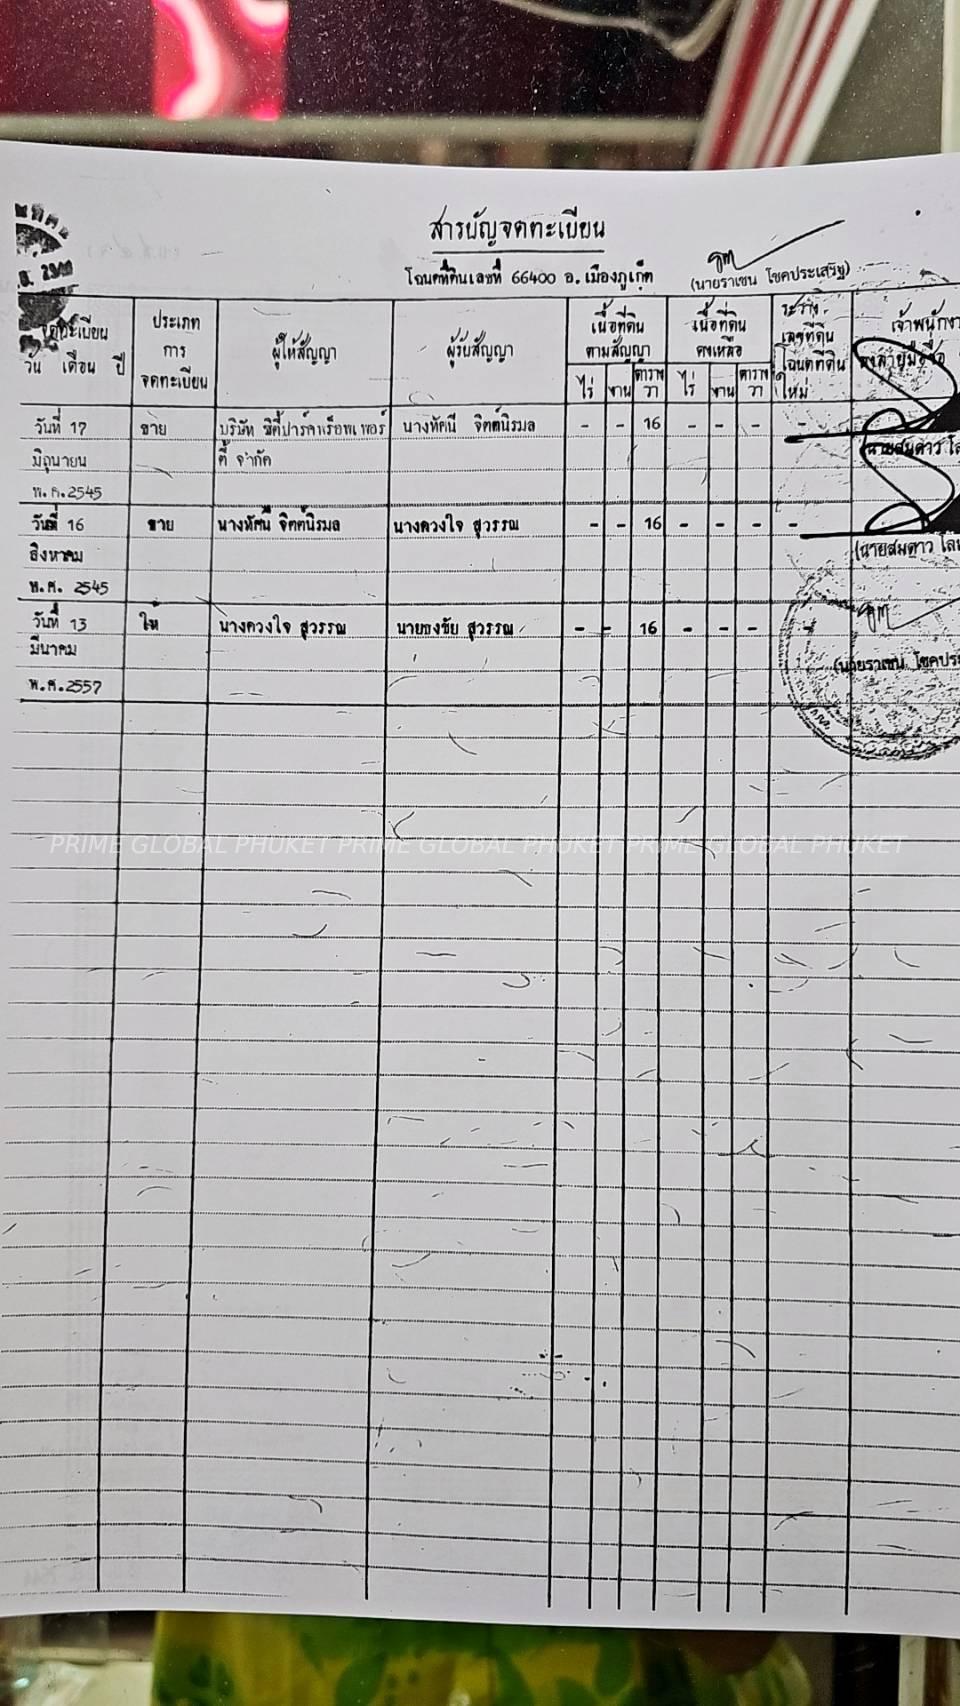 สารบัญจดทะเบียน
โฉนดที่ดินเลขที่ 66400 อ.เมืองภูเก็ต
(นายราเชน โชคประเสริฐ)
จดทะเบียน
วัน เดือน ปี
ประเภท
การ
จดทะเบียน
ผู้ให้สัญญา
ผู้รับสัญญา
เนื้อที่ดิน
ตามสัญญา
ไร่ งาน ตาราง
วา
เนื้อที่ดิน
คงเหลือ
ไร่ งาน ตาราง
วา
ระวาง
เลขที่ดิน
โฉนดที่ดิน
ใหม่
เจ้าพนักงา
ลงลายมือชื่อ
วันที่ 17 ขาย บริษัท ซิตี้ปาร์คพร็อพเพอร์ นางทัศนี จิตต์นิรมล - - 16 - - - -
มิถุนายน ตี้ จำกัด
พ.ศ.2545
วันที่ 16 ขาย นางทัศนี จิตต์นิรมล นางดวงใจ สุวรรณ - - 16 - - - -
สิงหาคม (นายสมดาว โล
พ.ศ. 2545
วันที่ 13 ให้ นางดวงใจ สุวรรณ นายธงชัย สุวรรณ - - 16 - - - -
มีนาคม (นายราเชน โชคประ
พ.ศ.2557
PRIME GLOBAL PHUKET PRIME GLOBAL PHUKET PRIME GLOBAL PHUKET